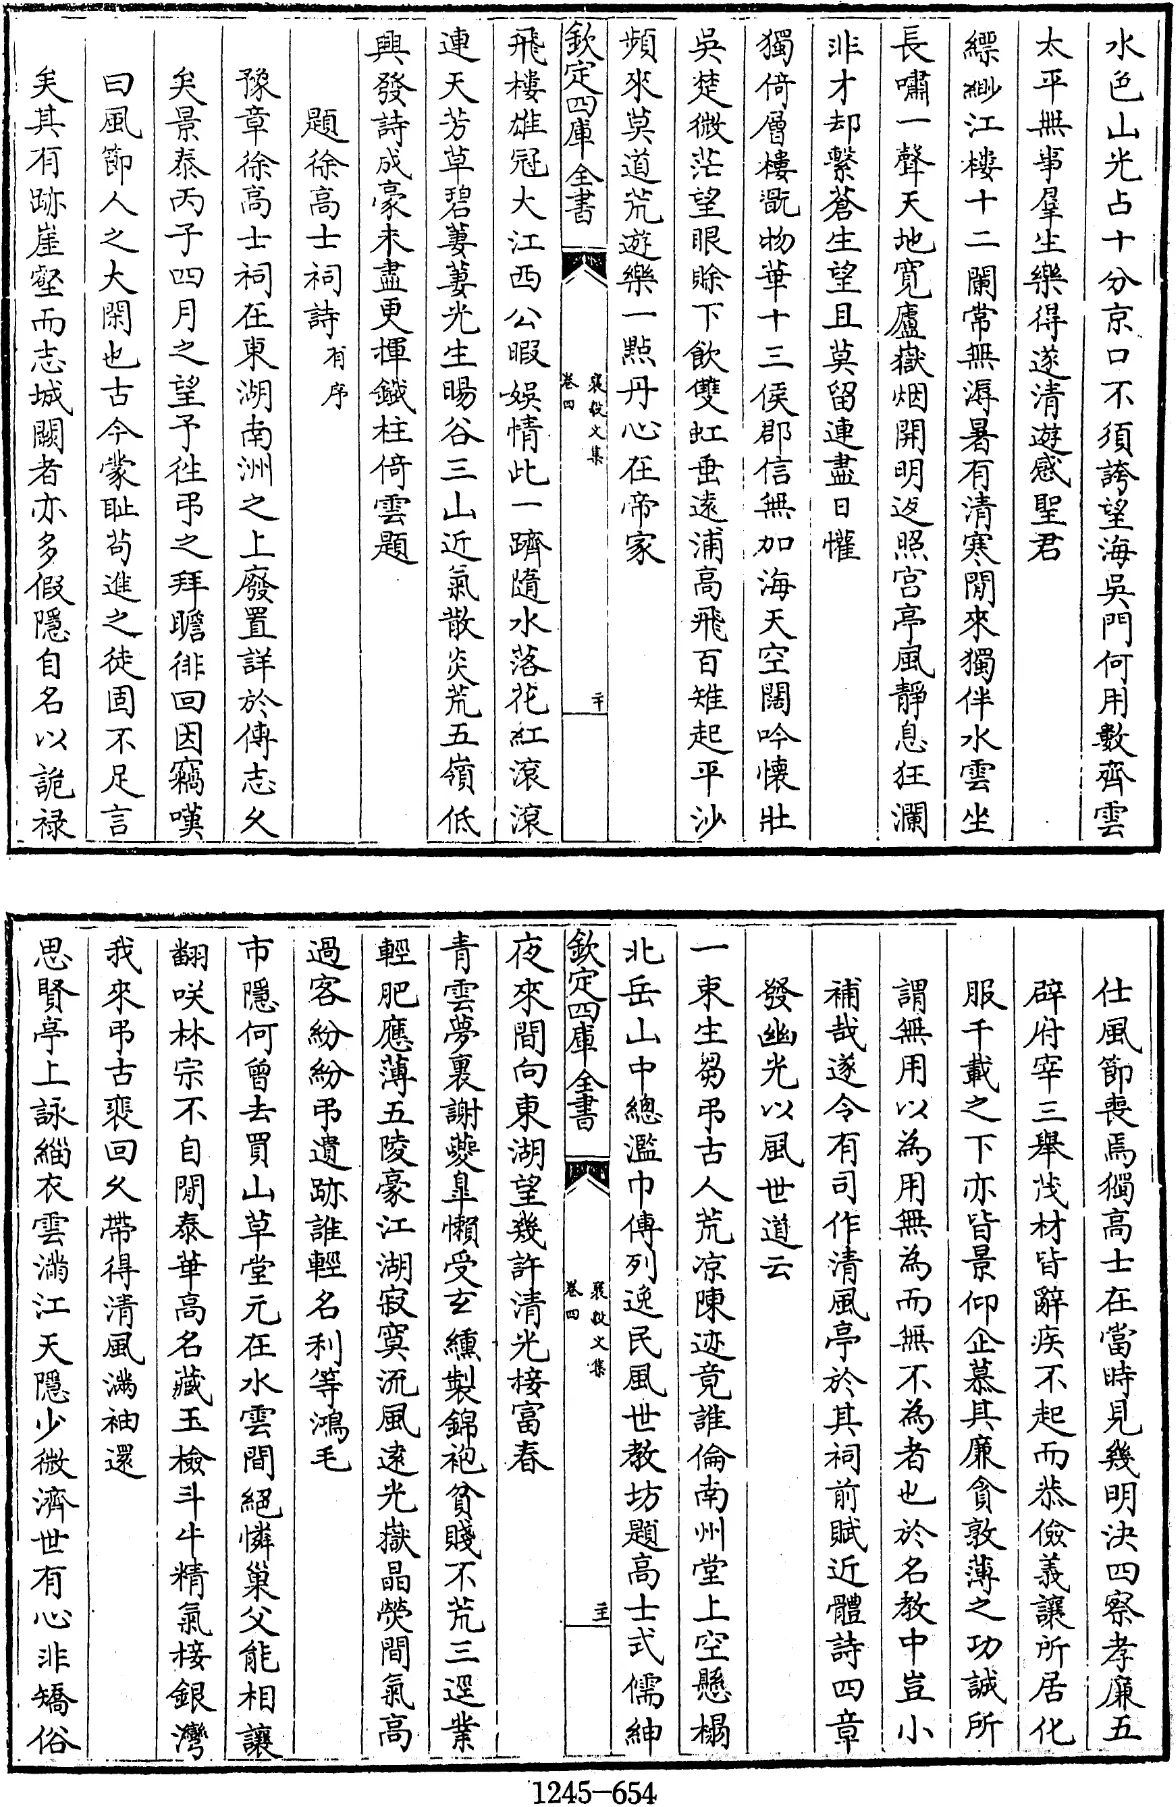 水色山光占十分京口不須誇望海吳門何用數齊雲
太平無事羣生樂得遂清遊感聖君
縹緲江樓十二闌常無溽暑有清寒閒來獨伴水雲坐
長嘯一聲天地寛廬嶽烟開明返照宫亭風靜息狂瀾
非才却繫蒼生望且莫留連盡日懽
獨倚層樓翫物華十三侯郡信無加海天空闊吟懷壯
吳楚微茫望眼賖下飲雙虹垂遠浦高飛百雉起平沙
頻來莫道荒遊樂一點丹心在帝家
欽定四庫全書
襄毅文集
卷四
二十
飛樓雄冠大江西公暇娛情此一躋隨水落花紅滾滾
連天芳草碧萋萋光生暘谷三山近氣散炎荒五嶺低
興發詩成豪未盡更揮鐵柱倚雲題
題徐高士祠詩有序
豫章徐高士祠在東湖南洲之上廢置詳於傳志久
矣景泰丙子四月之望予徃弔之拜瞻徘回因竊嘆
曰風節人之大閑也古今蒙耻苟進之徒固不足言
矣其有跡崖壑而志城闕者亦多假隱自名以詭禄
仕風節喪焉獨高士在當時見幾明決四察孝廉五
辟府宰三舉茂材皆辭疾不起而恭儉義讓所居化
服千載之下亦皆景仰企慕其廉貪敦薄之功誠所
謂無用以為用無為而無不為者也於名教中豈小
補哉遂令有司作清風亭於其祠前賦近體詩四章
發幽光以風世道云
一束生芻弔古人荒凉陳迹竟誰倫南州堂上空懸榻
北岳山中總濫巾傳列逸民風世教坊題高士式儒紳
欽定四庫全書
襄毅文集
卷四
二十一
夜來閒向東湖望幾許清光接富春
青雲夢裏謝夔臯懶受玄纁製錦袍貧賤不荒三逕業
輕肥應薄五陵豪江湖寂寞流風遠光嶽晶熒間氣高
過客紛紛弔遺跡誰輕名利等鴻毛
市隱何曾去買山草堂元在水雲間絕憐巢父能相讓
翻咲林宗不自閒泰華高名藏玉檢斗牛精氣接銀灣
我來弔古裴回久帶得清風滿袖還
思賢亭上詠緇衣雲滿江天隱少微濟世有心非矯俗
1245-654